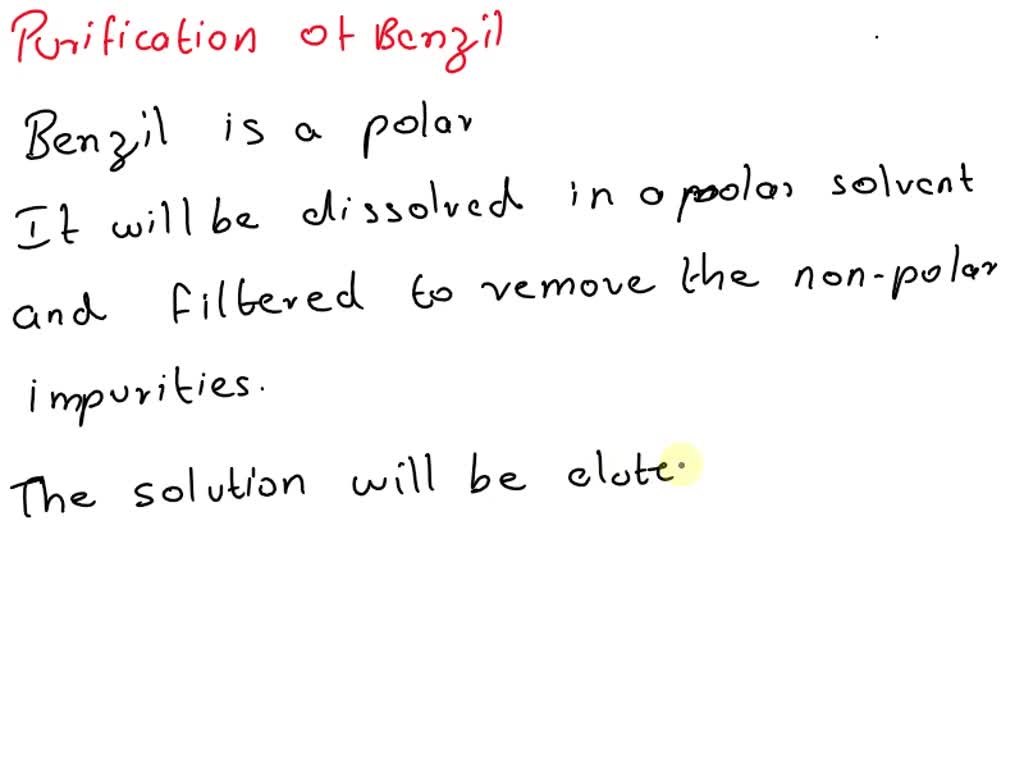 Purification of Benzil
Benzil is a polar
It will be dissolved in a polar solvent
and filtered to remove the non-polar
impurities.
The solution will be elute